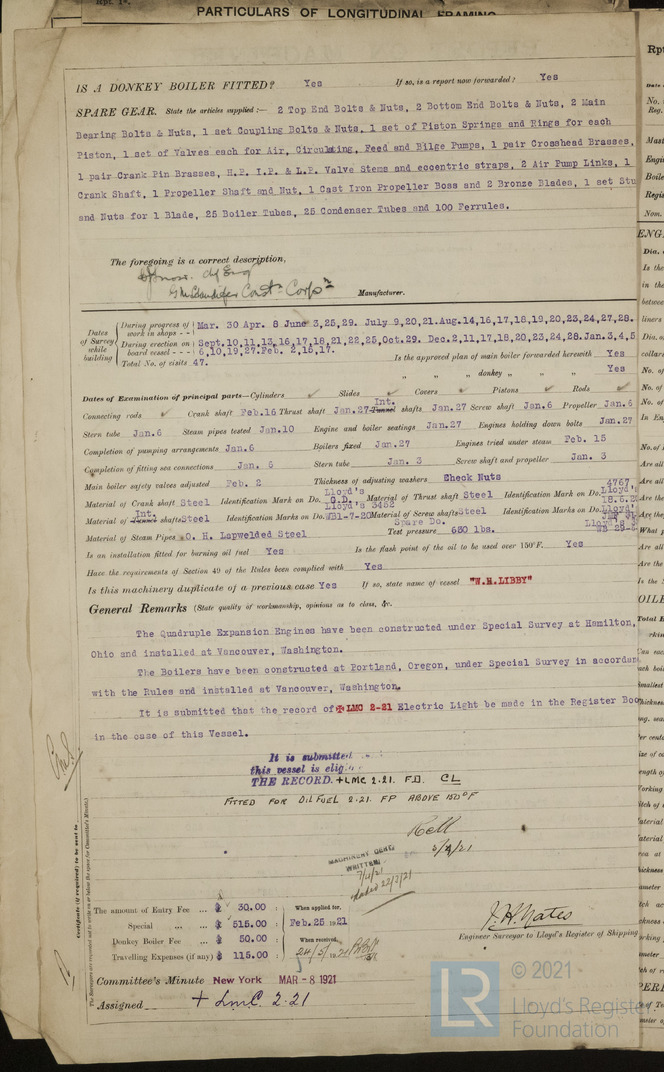 PARTICULARS OF LONGITUDINAL FRAMING
IS A DONKEY BOILER FITTED? Yes If so, is a report now forwarded? Yes
SPARE GEAR. State the articles supplied:— 2 Top End Bolts & Nuts, 2 Bottom End Bolts & Nuts, 2 Main
Bearing Bolts & Nuts, 1 set Coupling Bolts & Nuts, 1 set of Piston Springs and Rings for each
Piston, 1 set of Valves each for Air, Circulating, Feed and Bilge Pumps, 1 pair Crosshead Brasses,
1 pair Crank Pin Brasses, H.P. I.P. & L.P. Valve Stems and eccentric straps, 2 Air Pump Links, 1
Crank Shaft, 1 Propeller Shaft and Nut, 1 Cast Iron Propeller Boss and 2 Bronze Blades, 1 set Stu
and Nuts for 1 Blade, 25 Boiler Tubes, 25 Condenser Tubes and 100 Ferrules.
The foregoing is a correct description,
Const'n Corp'n Manufacturer.
Dates of Survey while building
During progress of work in shops - - Mar. 30 Apr. 8 June 3,25,29. July 9,20,21.Aug.14,16,17,18,19,20,23,24,27,28.
During erection on board vessel - - - Sept.10,11,13,16,17,18,21,22,25,Oct.29. Dec.2,11,17,18,20,23,24,28.Jan.3,4,5
6,10,19,27.Feb. 2,15,17.
Total No. of visits 47. Is the approved plan of main boiler forwarded herewith Yes
" " " donkey " " Yes
Dates of Examination of principal parts—Cylinders Slides Covers Pistons Rods
Connecting rods Crank shaft Feb.16 Thrust shaft Jan.27 Int. Tunnel shafts Jan.27 Screw shaft Jan.6 Propeller Jan.6
Stern tube Jan.6 Steam pipes tested Jan.10 Engine and boiler seatings Jan.27 Engines holding down bolts Jan.27
Completion of pumping arrangements Jan.6 Boilers fixed Jan.27 Engines tried under steam Feb. 15
Completion of fitting sea connections Jan. 6 Stern tube Jan. 3 Screw shaft and propeller Jan. 3
Main boiler safety valves adjusted Feb. 2 Thickness of adjusting washers Check Nuts
Material of Crank shaft Steel Identification Mark on Do. Lloyd's G.D. Material of Thrust shaft Steel Identification Mark on Do. 4767 Lloyd's
Material of Int. Tunnel shafts Steel Identification Marks on Do. Lloyd's 3452 WB1-7-20 Material of Screw shafts Steel Identification Marks on Do. Lloyd's
Spare Do.
Material of Steam Pipes O. H. Lapwelded Steel Test pressure 650 lbs.
Is an installation fitted for burning oil fuel Yes Is the flash point of the oil to be used over 150°F. Yes
Have the requirements of Section 49 of the Rules been complied with Yes
Is this machinery duplicate of a previous case Yes If so, state name of vessel "W.H.LIBBY"
General Remarks (State quality of workmanship, opinions as to class, &c.
The Quadruple Expansion Engines have been constructed under Special Survey at Hamilton,
Ohio and installed at Vancouver, Washington.
The Boilers have been constructed at Portland, Oregon, under Special Survey in accordan
with the Rules and installed at Vancouver, Washington.
It is submitted that the record of ✠ LMC 2-21 Electric Light be made in the Register Boo
in the case of this Vessel.
It is submitted
this vessel is elig
THE RECORD. +LMC 2.21. F.D. CL
FITTED FOR OIL FUEL 2.21. FP ABOVE 150°F
MACHINERY CERT.
WRITTEN
The amount of Entry Fee ... $ 30.00 When applied for,
Special ... $ 515.00 Feb.25 1921
Donkey Boiler Fee ... $ 50.00 When received,
Travelling Expenses (if any) $ 115.00
Engineer Surveyor to Lloyd's Register of Shipping
Committee's Minute New York MAR - 8 1921
Assigned + LMC. 2.21
© 2021
LR
Lloyd's Register
Foundation